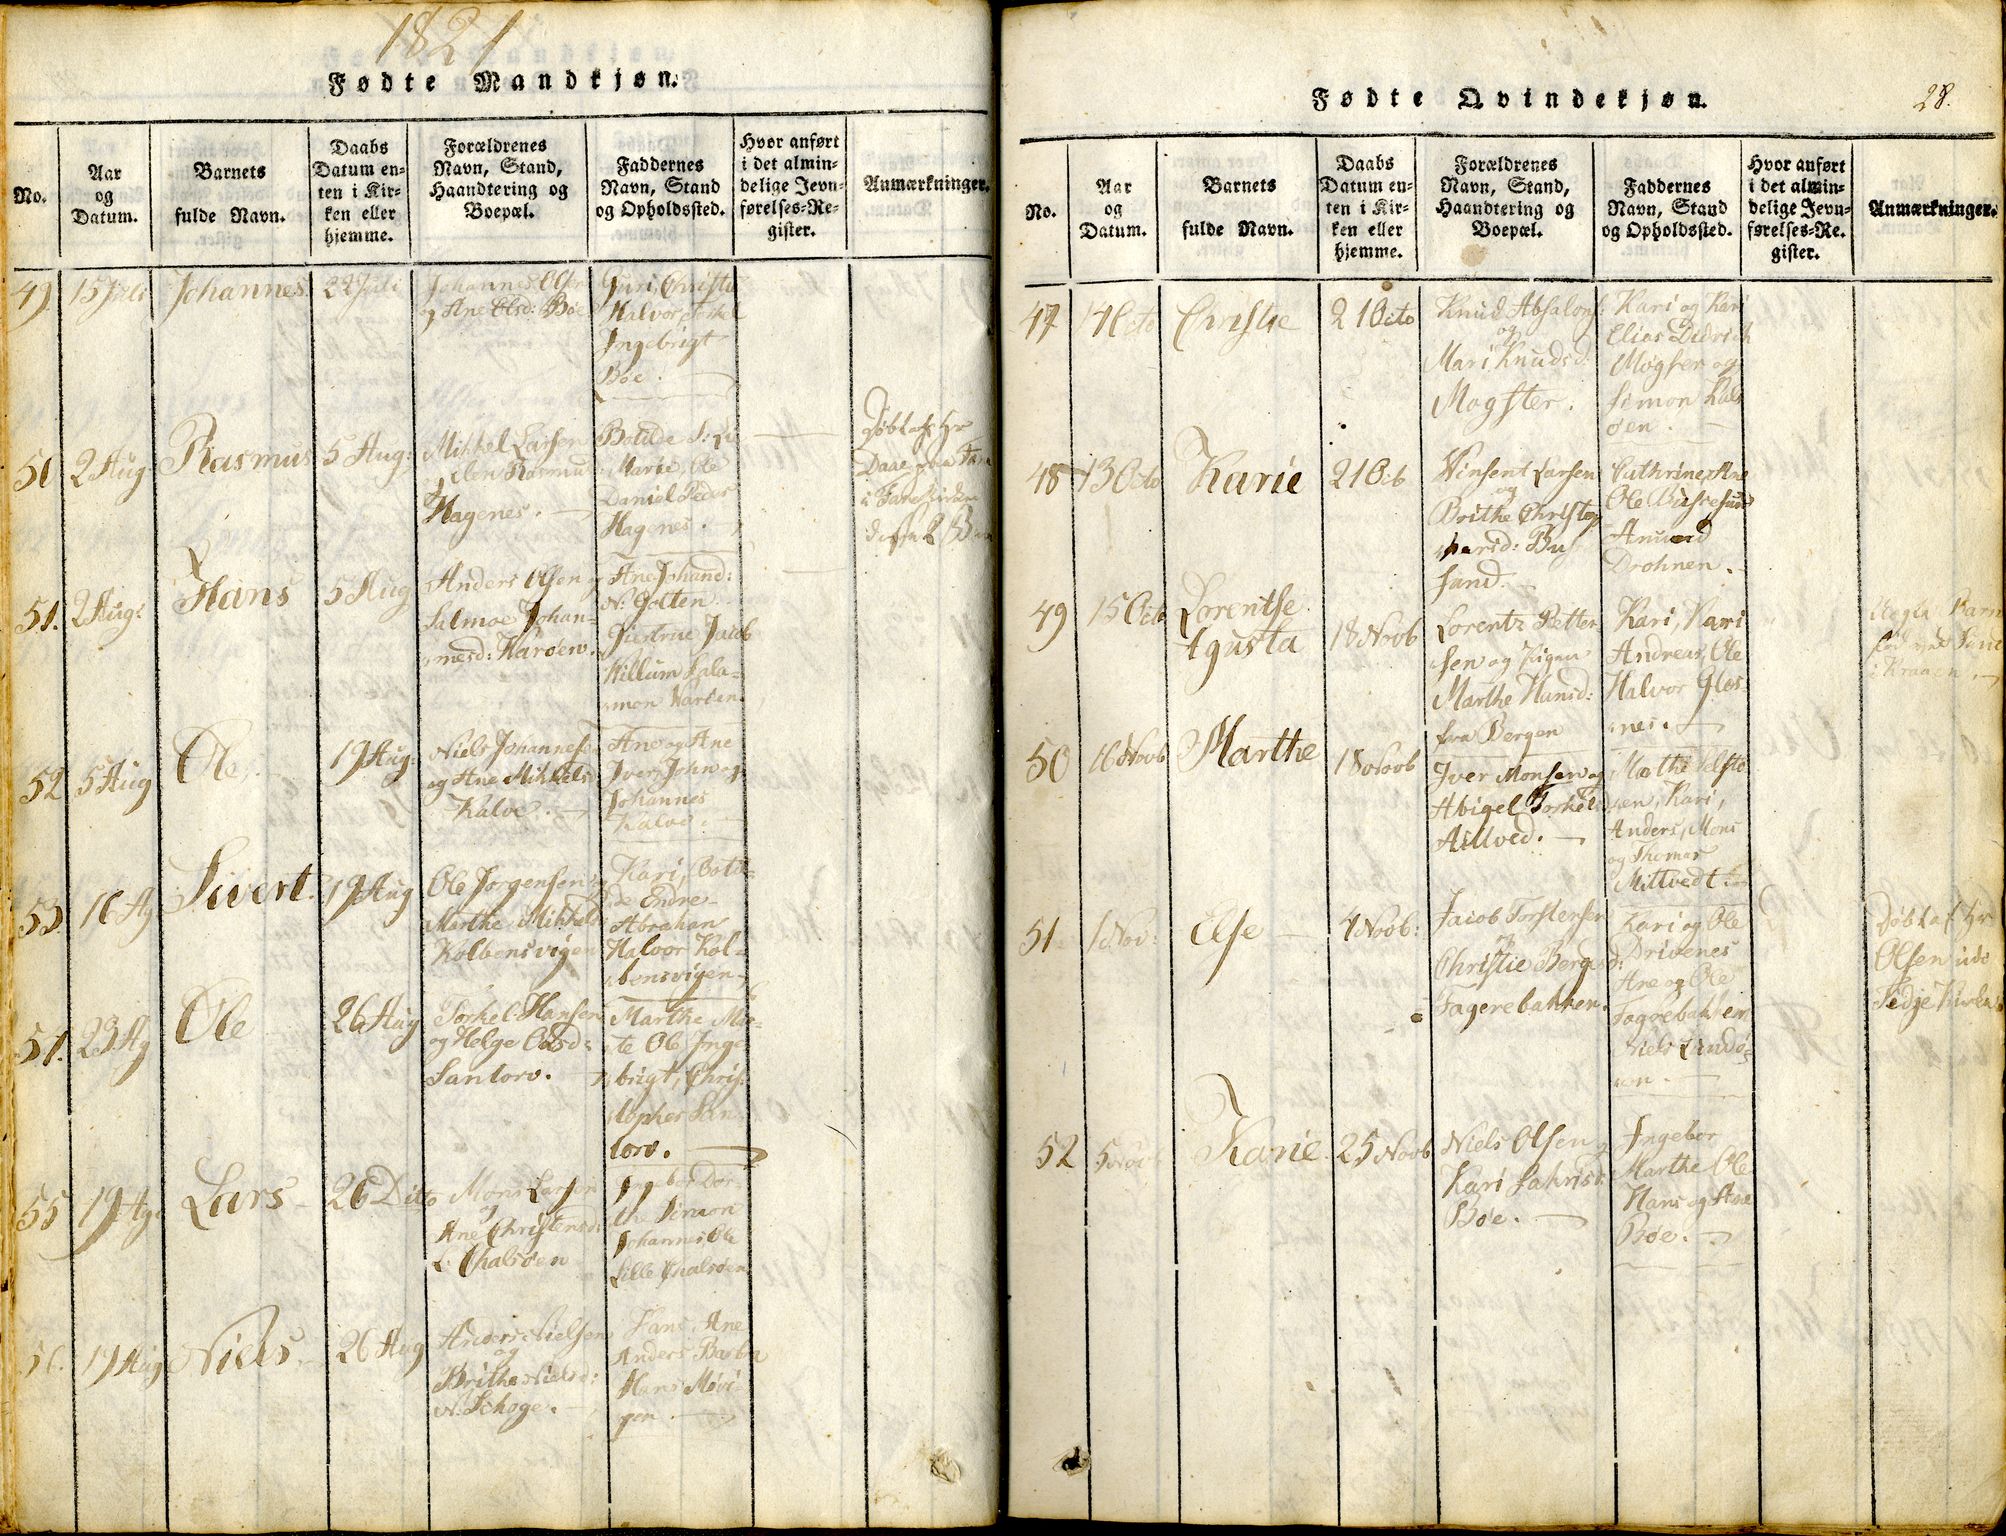 1821
Fødte Mandkjøn.
No.
Aar
og
Datum.
Barnets
fulde Navn.
Daabs
Datum en=
ten i Kir=
ken eller
hjemme.
Forældrenes
Navn, Stand,
Haandtering og
Boepæl.
Faddernes
Navn, Stand
og Opholdssted.
Hvor anført
i det almin=
delige Jevn=
førelses=Re=
gister.
Anmærkninger.
49. 15 Juli Johannes 22 Juli
Johannes Olsen
og Ane Olsd: Bøe
Guri, Christi
Halvor
Ingebrigt
Bøe.
50 2 Aug Rasmus 5 Aug:
Mikkel Larsen
og Elen Rasmus
Hagenes.
Botilde
Marte, Ole
Daniel Peder
Hagenes.
Døbt af Hr
Daae
51. 2 Aug: Hans 5 Aug
Anders Olsen og
Salmoe Johan=
nesd: Karøen.
Ane Johand:
N: Golten
Giertrue Jacob
Willum Sala=
mon Karøen.
52 5 Aug Ole 19 Aug:
Niels Johannesen
og Ane Mikkels
Kalve.
Ane og Ane
Iver, John og
Johannes
Kalve.
53. 16 Ag Sivert. 19 Aug
Ole Jørgensen og
Marthe Mikkels
Kolbensvigen
Kari, Botil=
de Endre
Abraham
Halvor Kol=
bensvigen
54. 23 Ag Ole 26 Aug
Torkel Hansen
og Helge Olsd:
Santorv.
Marthe Mar=
te Ole Inge
brigt, Chris=
topher San
torv.
55 19 Ag Lars 26 Ditto
Mons Larsen
og
Ane Christensd:
L:
Ingebor Dor=
th: Simon
Johannes Ole
Lille
56. 17 Aug Niels 26 Aug
Anders Nielsen
og
Brithe Nielsd:
N. Schoge.
Ane
Anders Barbra
Hans Møvi
gen.
Fødte Qvindekjøn.
28.
No.
Aar
og
Datum.
Barnets
fulde Navn.
Daabs
Datum en=
ten i Kir=
ken eller
hjemme.
Forældrenes
Navn, Stand,
Haandtering og
Boepæl.
Faddernes
Navn, Stand
og Opholdssted.
Hvor anført
i det almin=
delige Jevn=
førelses=Re=
gister.
Anmærkninger.
47 14 Octo Christie 21 Octo
Knud Absalons:
og
Mari Knudsd:
Magster.
Kari og Kari
Elias Didrich
Møgster og
Simon
øen.
48 13 Octo Karie 21 Octo
Vinsent Larsen
og
Brithe Christop
harsd: Bu
sund.
Cathrine, Ane
Ole
Amund
Drohnen.
49 15 Octo Lorentse
Agusta 18 Novb
Lorentz Petter
sen og Pigen
Marthe Hansd:
fra Bergen
Kari, Kari
Andreas, Ole
Halvor Glos
nes.
Uægte Barn
50 16 Novb Marthe 18 Novb
Iver Monsen og
Abigel Torkels
Mitved.
Marthe
Kari,
Anders, Mons
og Thomas
Mittvedt
51 1 Nov: Else 4 Novb:
Jacob Torstensen
og
Christie Bergsd:
Fagerebakken.
Kari og Ole
Drivenes
Ane og Ole
Fagrebakken
Niels Lindø=
en.
Døbt af Hr
Olsen udi
Fedje Kirke
52 5 Novb Karie 25 Novb
Niels Olsen og
Kari
Bøe.
Ingebor
Marthe Ole
Hans og Ane
Bøe.